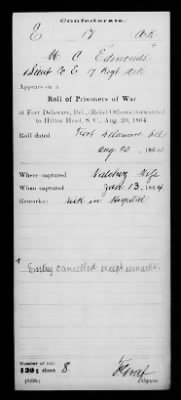 Confederate.
E 17 Ark
M. C. Edmonds
Lieut Co E 17 Regt Ark
Appears on a
Roll of Prisoners of War
at Fort Delaware, Del., (Rebel Officers) forwarded
to Hilton Head, S. C., Aug. 20, 1864
Roll dated Fort Delaware Del
Aug 20, 1864
Where captured
When captured Jan 13, 1864
Remarks: Sick in Hospital
Entry cancelled except remarks.
Number of roll:
130; sheet 8
Copyist.